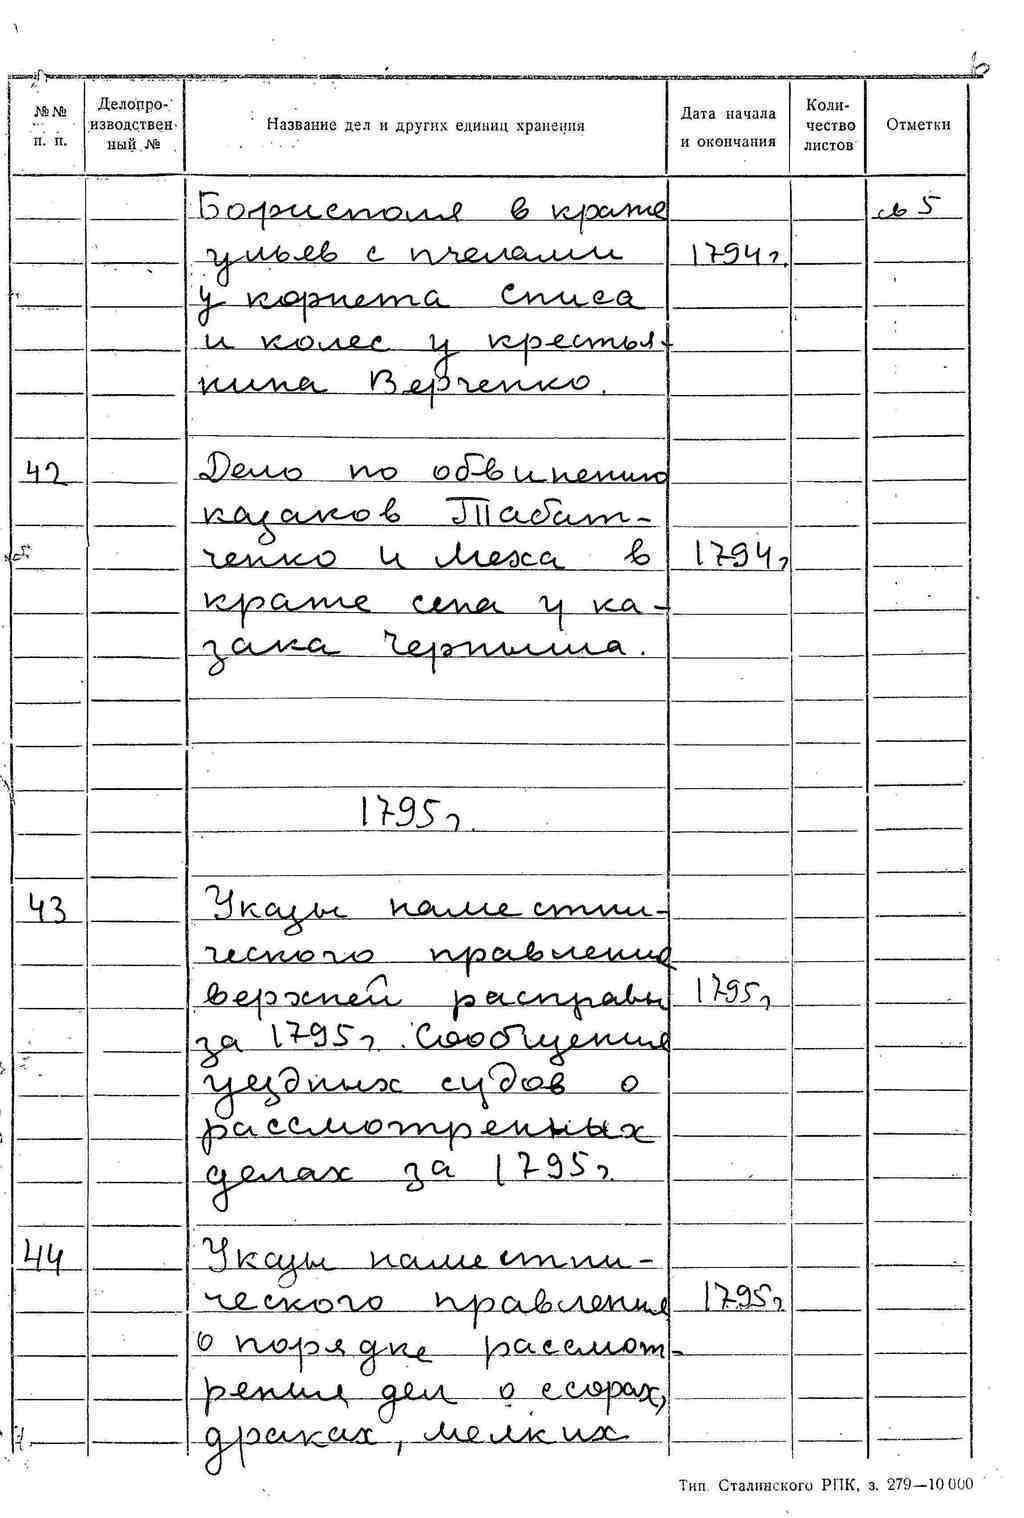 6
№№ п. п. Делопро-изводствен-ный № Название дел и других единиц хранения Дата начала и окончания Коли-чество листов Отметки
Борисполя в краже св 5
ульев с пчелами 1794 г.
у корнета Списа
и колес у крестья-
нина Верченко.
42 Дело по обвинению
казаков Табат-
ченко и Меха в 1794 г
краже сена у ка-
зака Черныша.
1795 г.
43 Указы наместни-
ческого правления
верхней расправы 1795 г
за 1795 г. Сообщения
уездных судов о
рассмотренных
делах за 1795 г.
44 Указы наместни-
ческого правления 1795 г
о порядке рассмот-
рения дел о ссорах,
драках, мелких
Тип. Сталинского РПК, з. 279—10 000